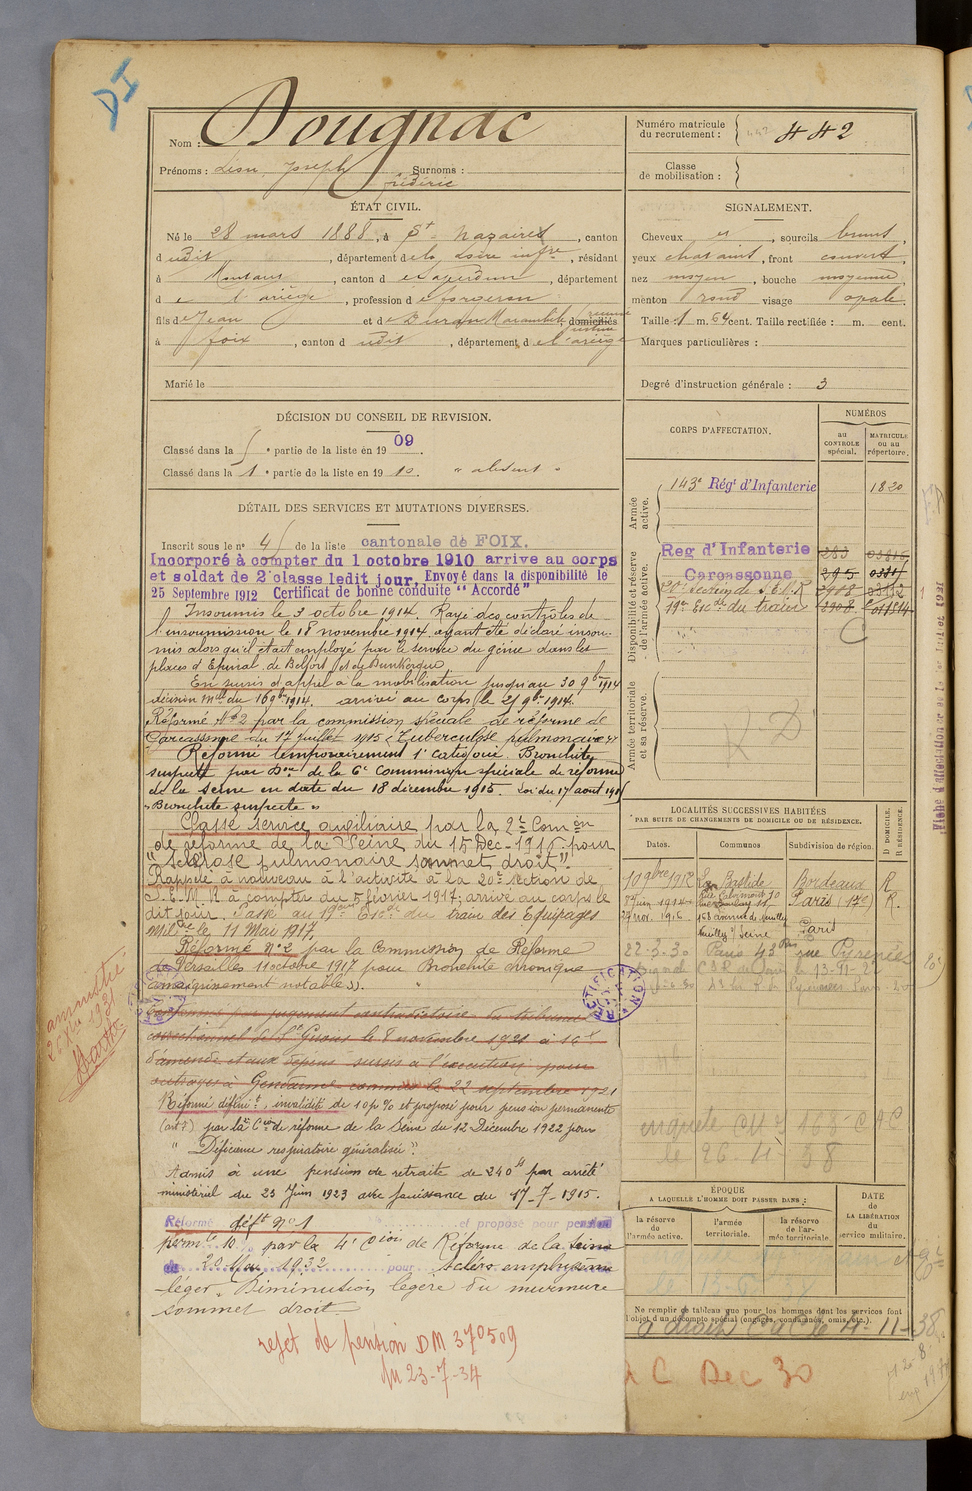 DI
Nom : Dougnac
Prénoms : Léon Joseph Surnoms :
Frédéric
Numéro matricule
du recrutement : 442 442
Classe
de mobilisation :
ÉTAT CIVIL.
Né le 28 mars 1888, à St Nazaire, canton
dudit, département de la Loire infre, résidant
à Montaut, canton de Saverdun, département
de l'ariège, profession de forgeron
fils de Jean et de Duran domiciliés
à foix, canton dudit, département de l'ariège
Marié le
SIGNALEMENT.
Cheveux et, sourcils bruns,
yeux chatains, front couvert,
nez moyen, bouche moyenne,
menton rond visage ovale.
Taille 1 m. 64 cent. Taille rectifiée : m. cent.
Marques particulières :
Degré d'instruction générale : 3
DÉCISION DU CONSEIL DE REVISION.
Classé dans la partie de la liste en 1909.
Classé dans la 1 e partie de la liste en 1910. " absent "
DÉTAIL DES SERVICES ET MUTATIONS DIVERSES.
Inscrit sous le n° 45 de la liste cantonale de FOIX.
Incorporé à compter du 1 octobre 1910 arrive au corps
et soldat de 2e classe ledit jour. Envoyé dans la disponibilité le
25 Septembre 1912 Certificat de bonne conduite "Accordé"
Insoumis le 3 octobre 1914. Rayé des contrôles de
l'insoumission le 18 novembre 1914, ayant été déclaré insou-
mis alors qu'il était employé par le service du génie dans les
places d'Epinal, de Belfort et de Dunkerque
En sursis d'appel à la mobilisation jusqu'au 30 9bre 1914
décision mlle du 16 9bre 1914. arrivé au corps le 21 9bre 1914.
Réformé N°2 par la commission spéciale de réforme de
Carcassonne du 17 juillet 1915 "Tuberculose pulmonaire"
Réformé temporairement 1e catégorie. Bronchite
suspecte par Don de la 6e Commission spéciale de réforme
de la Seine en date du 18 décembre 1915. Loi du 17 aout 1915
"Bronchite suspecte"
Classé service auxiliaire par la 2e Comon
de réforme de la Seine du 15 Dec. 1916 pour
"sclérose pulmonaire sommet droit".
Rappelé à nouveau à l'activité à la 20e section de
S.E.M.R à compter du 5 février 1917; arrivé au corps le
dit jour. Passé au 19me Escon du train des Equipages
Milres le 11 Mai 1917.
Réformé N°2 par la Commission de Réforme
de Versailles 11 octobre 1917 pour Bronchite chronique
amaigrissement notable.
Condamné par jugement contradictoire du tribunal
correctionnel de St Girons le 8 novembre 1921 à 16 f
d'amende et aux dépens sursis à l'exécution pour
outrages à Gendarmes commis le 22 septembre 1921
Réformé définit, invalidité de 10 p % et proposé pour pension permanente
par la Con de réforme de la Seine du 12 Décembre 1922 pour
"Déficience respiratoire généralisée".
Admis à une pension de retraite de 240 f par arrêté
ministériel du 23 Juin 1923 avec jouissance du 17-7-1915.
Réformé déft N°1 et proposé pour pension
perm 10 % par la 4e Con de Réforme de la Seine
de 20 Mai 1932 pour
léger. Diminution légère du murmure
sommet droit
rejet de pension DM 370509
du 23-7-34
amnistié
RECTIFICATION
CORPS D'AFFECTATION.
NUMÉROS
au
CONTROLE
spécial.
MATRICULE
ou au
répertoire.
Armée
active.
143e Régt d'Infanterie 1820
Disponibilité et réserve
de l'armée active.
Reg d'Infanterie 283
Carcassonne 295
20e Section de S.E.M.R 2908
19e Escon du train 2908
Armée territoriale
et sa réserve.
LOCALITÉS SUCCESSIVES HABITÉES
PAR SUITE DE CHANGEMENTS DE DOMICILE OU DE RÉSIDENCE.
Dates. Communes Subdivision de région. D DOMICILE. R RÉSIDENCE.
10 9bre 1912 La Bastide Bordeaux R
Paris (17e) R.
29 nov. 1916 168 avenue de Neuilly
Neuilly s/ Seine Paris
22-3-30 Paris 43 bis rue Pyrenées
enquete
le 26-4-38
ÉPOQUE
A LAQUELLE L'HOMME DOIT PASSER DANS :
la réserve
de
l'armée active.
l'armée
territoriale.
la réserve
de l'ar-
mée territoriale.
DATE
de
LA LIBÉRATION
du
service militaire.
Ne remplir ce tableau que pour les hommes dont les services font
l'objet d'un décompte spécial (engagés, condamnés, omis, etc.).
C Dec 30